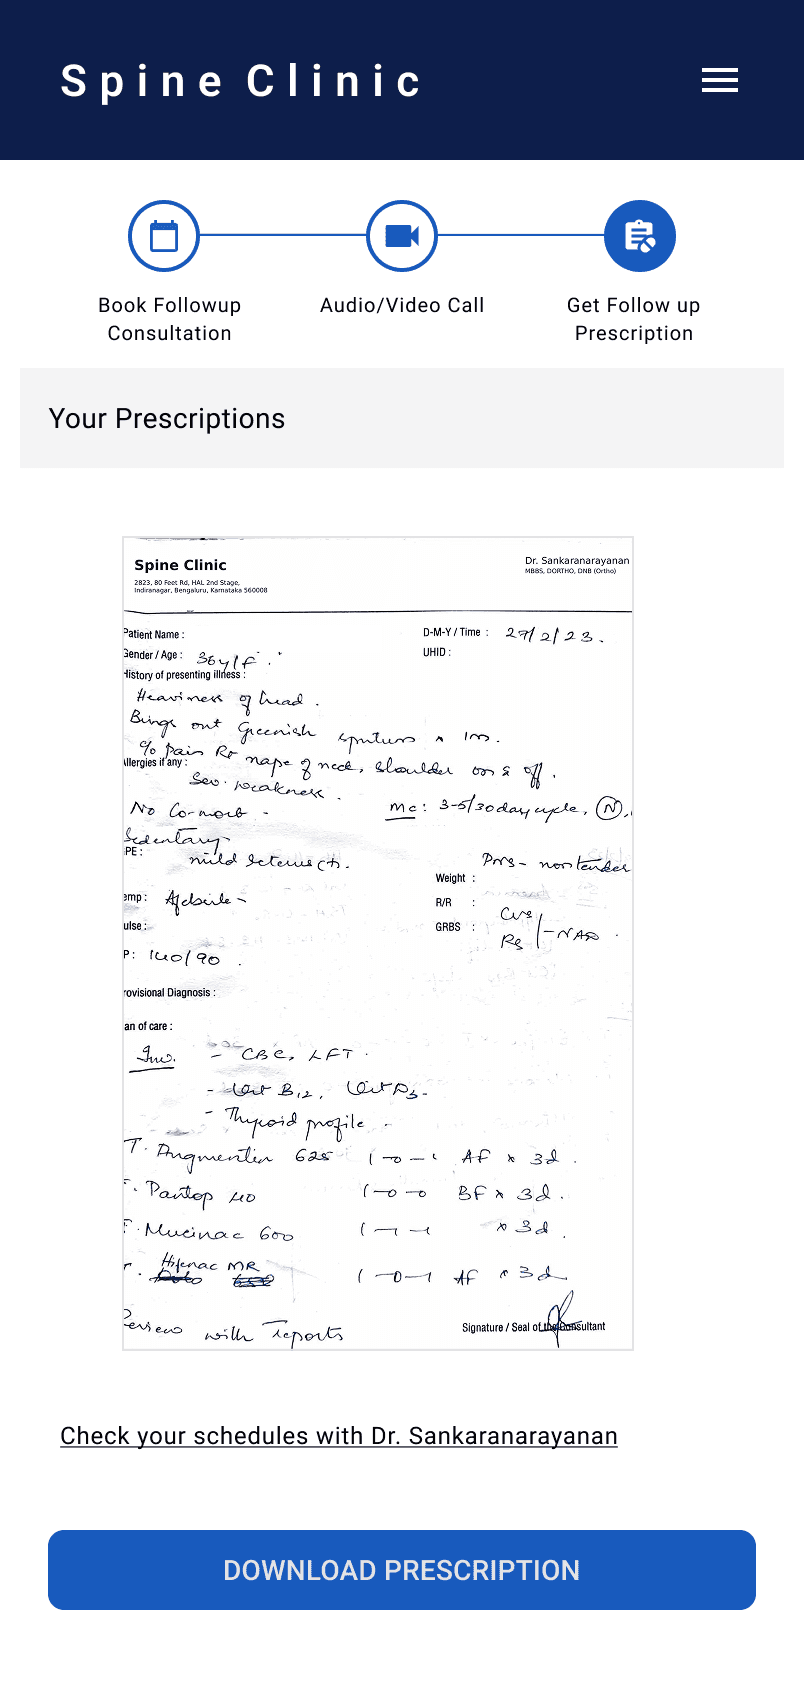 Spine Clinic
Book Followup
Consultation
Audio/Video Call
Get Follow up
Prescription
Your Prescriptions
Spine Clinic
2823, 80 Feet Rd, HAL 2nd Stage,
Indiranagar, Bengaluru, Karnataka 560008
Dr. Sankaranarayanan
MBBS, DORTHO, DNB (Ortho)
Patient Name :
D-M-Y / Time : 27/2/23.
Gender / Age : 36y/F.
UHID :
History of presenting illness :
Heaviness of head.
Brings out Greenish sputum x 1m.
c/o pain Rt nape of neck, shoulder on & off.
Allergies if any :
Sev. weakness.
No Co-morb -
Mc: 3-5/30day cycle, (N),
Sedentary
PE :
mild Icterus (+).
PNS - nontender
Weight :
emp : Afebrile -
R/R :
CVS
ulse :
GRBS :
RS - NAD.
P : 140/90.
rovisional Diagnosis :
an of care :
Inv. - CBC, LFT.
- Vit B12, Vit D3-
- Thyroid profile.
T. Augmentin 625 1-0-1 AF x 3d.
T. Pantop 40 1-0-0 BF x 3d.
T. Mucinac 600 1-1-1 x 3d.
T. Hifenac MR 1-0-1 AF x 3d
Review with reports
Signature / Seal of the Consultant
Check your schedules with Dr. Sankaranarayanan
DOWNLOAD PRESCRIPTION